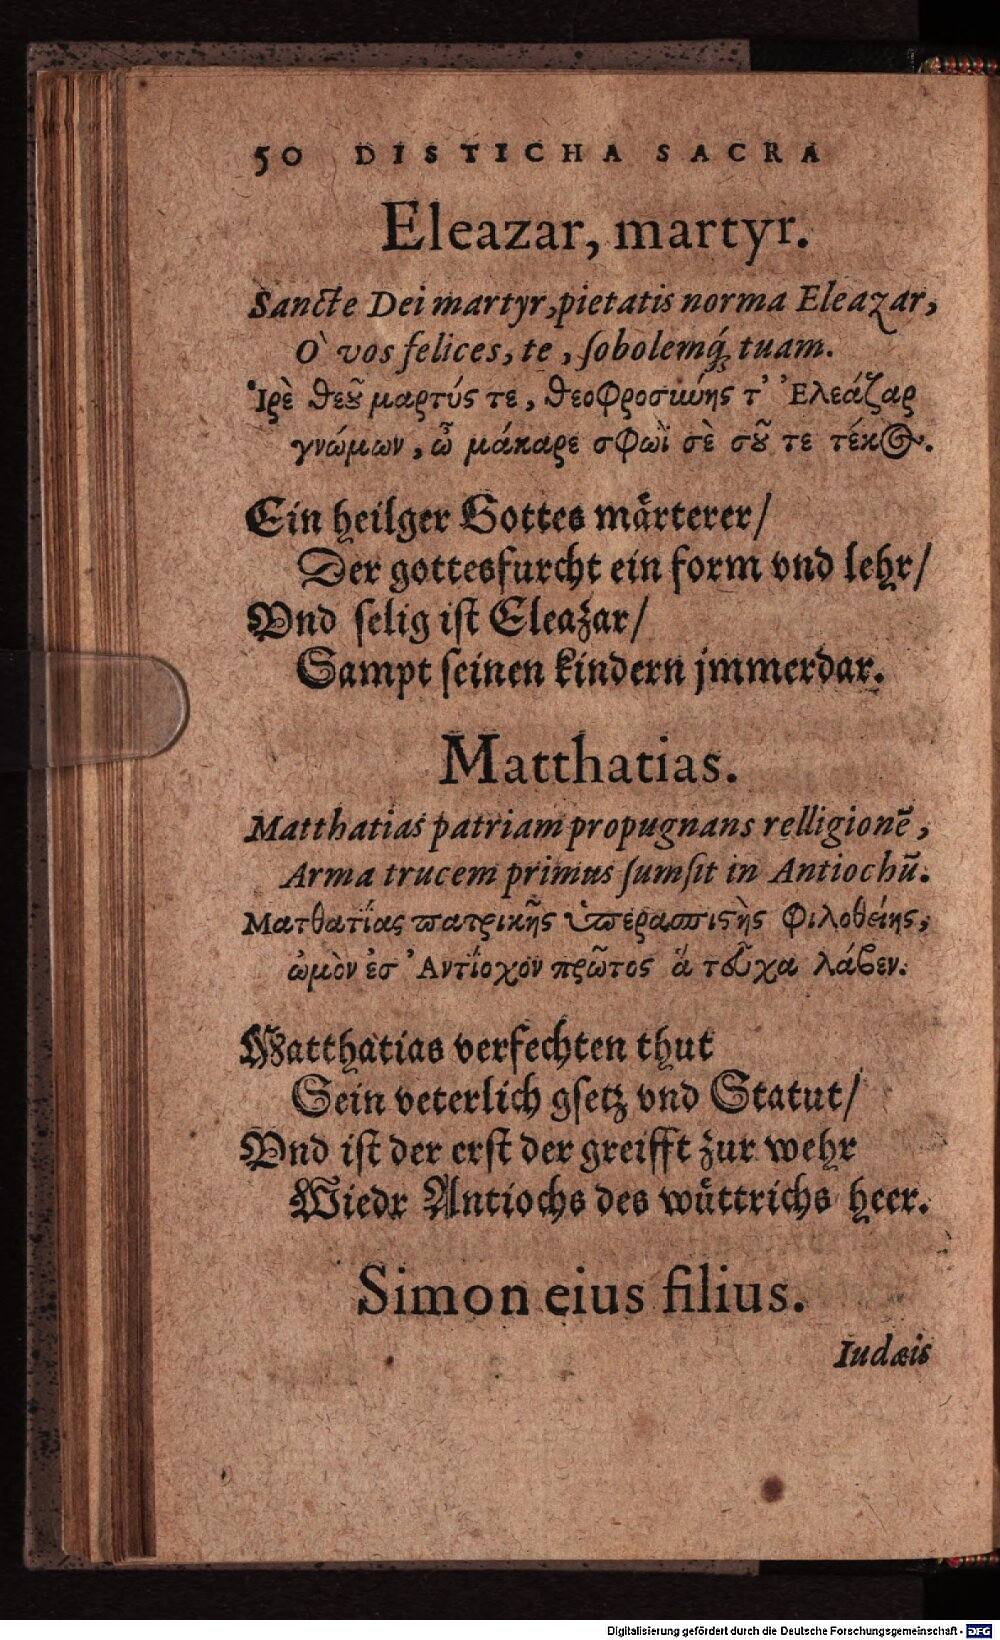 50 DISTICHA SACRA
Eleazar, martyr.
Sancte Dei martyr, pietatis norma Eleazar,
O' vos felices, te, ſobolemq́; tuam.
Ἱρὲ θεοῦ μαρτύς τε, θεοφροσύνης τ' Ἐλεάζαρ
γνώμων, ὦ μάκαρε σφωῒ σὲ σοῦ τε τέκος.
Ein heilger Gottes mårterer/
Der gottesfurcht ein form vnd lehr/
Vnd ſelig iſt Eleazar/
Sampt ſeinen kindern jmmerdar.
Matthatias.
Matthatias patriam propugnans relligionē,
Arma trucem primus ſumſit in Antiochū.
Ματθατίας πατρικῆς ὑπερασπιστὴς φιλοθείης,
ὠμὸν ἐσ' Ἀντίοχον πρῶτος ἃ τεῦχα λάβεν.
Matthatias verfechten thut
Sein veterlich gſetz vnd Statut/
Vnd iſt der erſt der greifft zur wehr
Wiedr Antiochs des wůttrichs heer.
Simon eius filius.
Iudæis
Digitalisierung gefördert durch die Deutsche Forschungsgemeinschaft - DFG